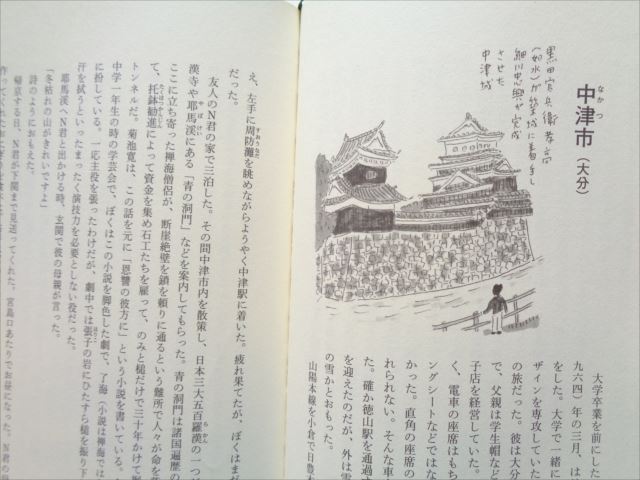 中津市（大分）
なかつ
黒田官兵衛孝高
(如水)が築城に着手し
細川忠興が完成
させた
中津城
大学卒業を前にした
九六四）年の三月、は
をした。大学で一緒に
ザインを専攻していた
の旅だった。彼は大分
で、父親は学生帽など
子店を経営していた。
く、電車の座席はもち
ングシートなどではな
かった。直角の座席の
れられない。そんな車
た。確か徳山駅を通過す
を迎えたのだが、外は
の雪かとおもった。
山陽本線を小倉で日豊
え、左手に周防灘を眺めながらようやく中津駅に着いた。疲れ果てたが、ぼくはまだ
だった。
友人のN君の家で三泊した。その間中津市内を散策し、日本三大五百羅漢の一つ
漢寺や耶馬渓にある「青の洞門」などを案内してもらった。青の洞門は諸国遍歴の
ここに立ち寄った禅海僧侶が、断崖絶壁を鎖を頼りに通るという難所で人々が命を
托鉢勧進によって資金を集め石工たちを雇って、のみと槌だけで三十年かけて
トンネルだ。菊池寛は、この話を元に「恩讐の彼方に」という小説を書いている。
中学一年生の時の学芸会で、ぼくはこの小説を脚色した劇で、了海（小説は禅海では
に扮している。一応主役を張ったわけだが、劇中では張子の岩にひたすら槌を振り下
汗を拭うといったまったく演技力を必要としない役だった。
耶馬渓へN君と出かける時、玄関で彼の母親が言った。
「冬枯れの山がきれいですよ」
詩のようにおもえた。
帰京する日、N君が下関まで見送ってくれた。宮島口あたりでお昼になった。N君の
作ってくれた